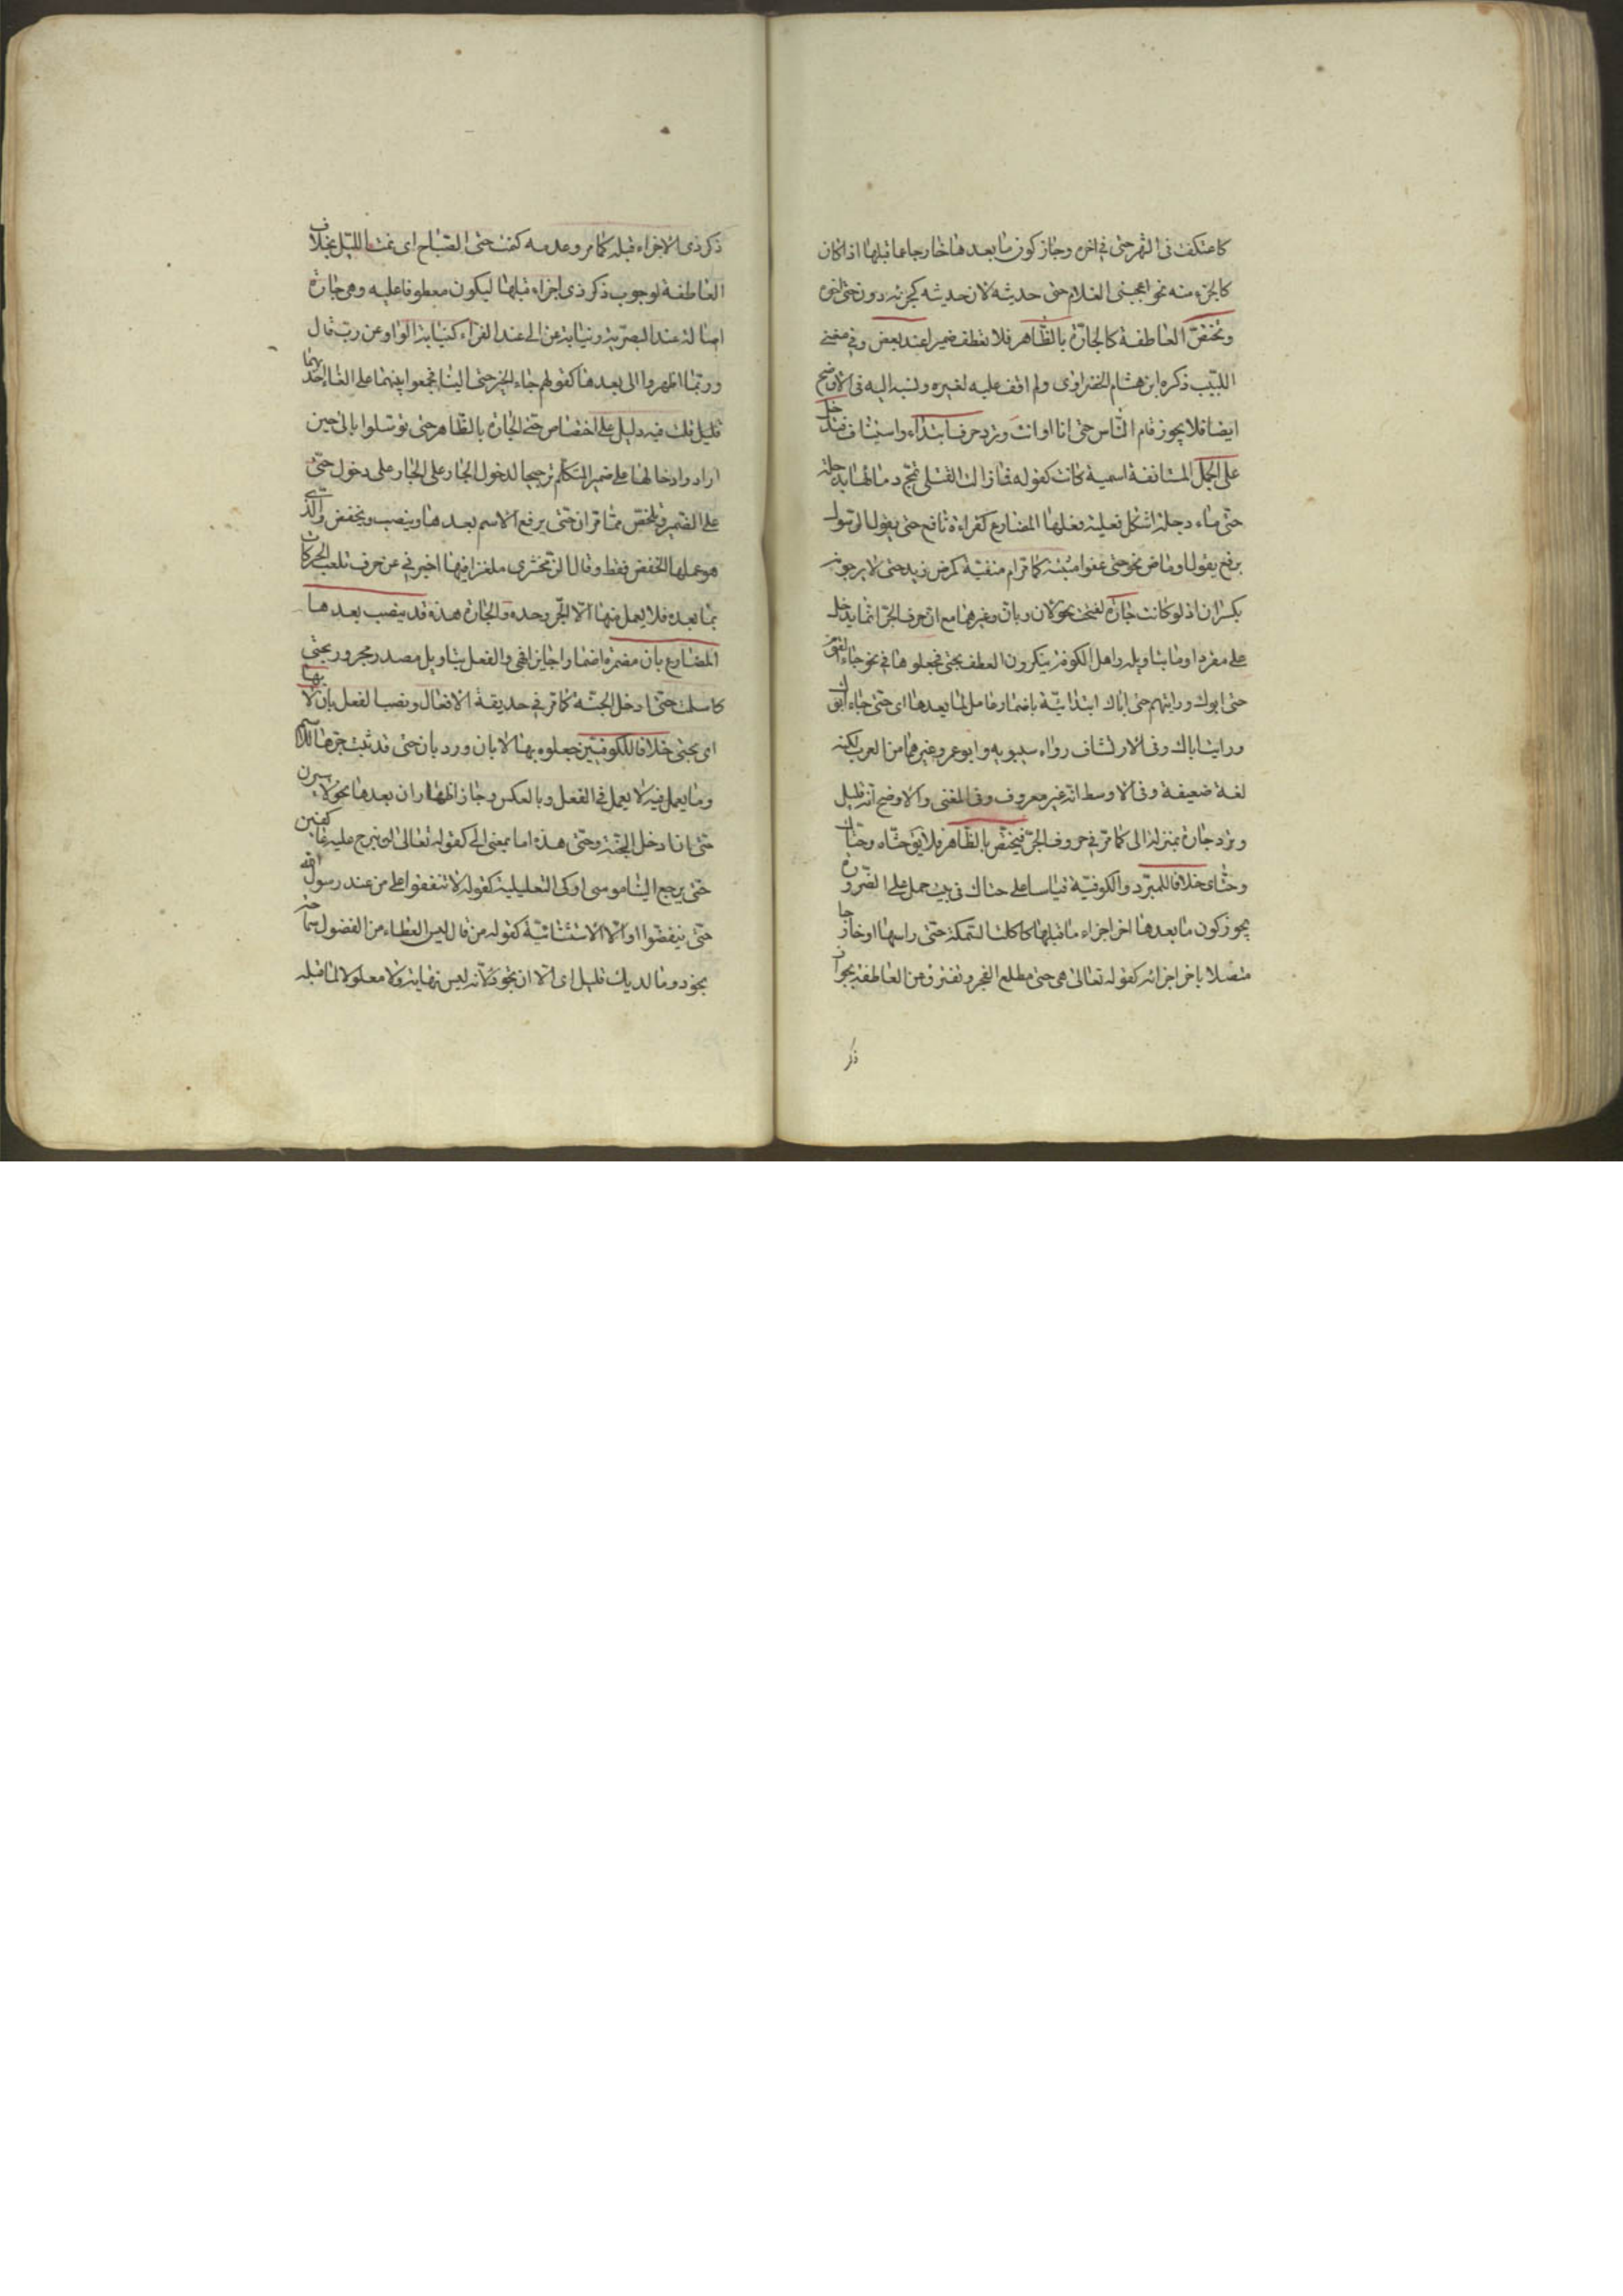 كاعتكفت فى الشهر حتى فى اخره وجاز كون ما بعدها خارجا عما قبلها اذا كان
كالجزء منه نحو اعجبنى الغلام حتى حديثه لان حديثه كجزئه دون حتى ابنه
وتختص العاطفة كالجارة بالظاهر فلا تعطف ضميرا عند بعض وفى مغنى
اللبيب ذكره ابن هشام الخضراوى ولم اقف عليه لغيره ونسبه اليه فى الاوضح
ايضا فلا يجوز قام الناس حتى انا او انت وترد حرف ابتداء واستيناف فتدخل
على الجمل المستانفة اسمية كانت كقوله فما زالت القتلى تمج دمائها بدجلة
حتى ماء دجلة اشكل فعلية فعلها المضارع كقراءة نافع حتى يقول الرسول
برفع يقول او ماض نحو حتى عفوا مثبتة كما مر ام منفية كمرض زيد حتى لا يرجونه
بكسر ان اذ لو كانت جارة لفتحت نحو لان وبان وغيرهما مع ان حرف الجر انما يدخل
على مفرد او ما بتاويله واهل الكوفة ينكرون العطف بحتى فجعلوها فى نحو جاء القوم
حتى ابوك ورايتهم حتى اباك ابتدائية باضمار عامل لما بعدها اى حتى جاء ابوك
ورايت اباك وفى الارتشاف رواه سيبويه وابو عمرو وغيرهما من العرب لكنه
لغة ضعيفة وفى الاوسط انه غير معروف وفى المغنى والاوضح انه قليل
وترد جارة بمنزلة الى كما مر فى حروف الجر فيختص بالظاهر فلا يق حتاه وحتاك
وحتاى خلافا للمبرد والكوفية قياسا على حتاك فى بيت حمل على الضرورة
يجوز كون ما بعدها اخر اجزاء ما قبلها كاكلت السمكة حتى راسها او خارجا
متصلا باخر اجزائه كقوله تعالى هى حتى مطلع الفجر وتفترق من العاطفة بجواز
ذكر
ذكر ذى الاجزاء قبله كما مر وعدمه كنمت حتى الصباح اى نمت الليل بخلاف
العاطفة لوجوب ذكر ذى اجزاء قبلها ليكون معطوفا عليه وهى جارة
اصالة عند البصرية ونيابة عن الى عند الفراء كنيابة الواو عن رب قال
وربما اظهروا الى بعدها كقولهم جاء الخبر حتى الينا فجمعوا بينهما على الغاء احدهما
قليل قلت فيه دليل على اختصاص حتى الجارة بالظاهر حتى توسلوا بالى حين
ارادوا دخالها على ضمير المتكلم ترجيحا لدخول الجار على الجار على دخول حتى
على الضمير وتلخص مما مر ان حتى يرفع الاسم بعدها وينصب ويخفض والذى
هو عملها الخفض فقط وقال الزمخشرى ملغزا فيها اخبرنى عن حرف تلعب الحركات
بما بعده فلا يعمل منها الا الجر وحده والجارة هذه قد ينصب بعدها
المضارع بان مضمرة اضمارا جايزا فهى والفعل بتاويل مصدر مجرور بحتى
كاسلمت حتى ادخل الجنة كما مر فى حديقة الافعال ونصب الفعل بان لا بها
اى بحتى خلافا للكوفيين جعلوه بها لا بان ورد بان حتى قد ثبت جرها للاسم
وما يعمل فيه لا يعمل فى الفعل وبالعكس وجاز اظهار ان بعدها نحو لاسيرن
حتى ان ادخل الجنة وحتى هذه اما بمعنى الى كقوله تعالى لن نبرح عليه عاكفين
حتى يرجع الينا موسى او كى التعليلية كقوله لا تنفقوا على من عند رسول الله
حتى ينفضوا او الا الاستثنائية كقوله من قال ليس العطاء من الفضول سماحة حتى
تجود وما لديك قليل اى الا ان تجود لانه ليس نهاية ولا معلولا لما قبله